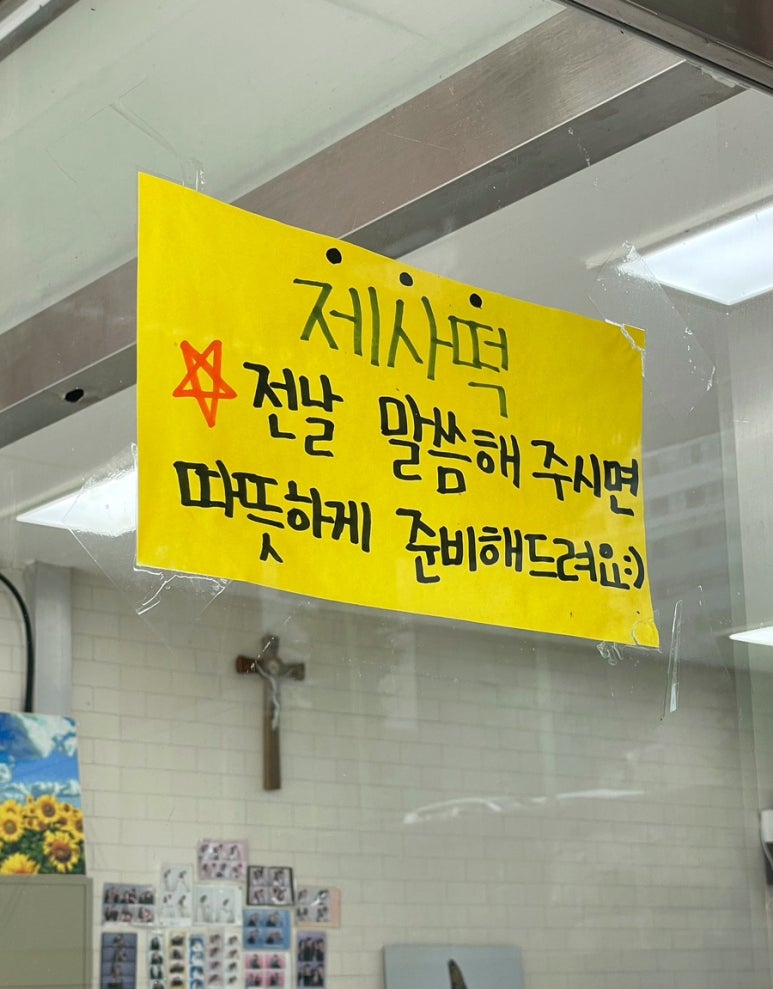 제사떡
☆전날 말씀해 주시면
따뜻하게 준비해드려요:)